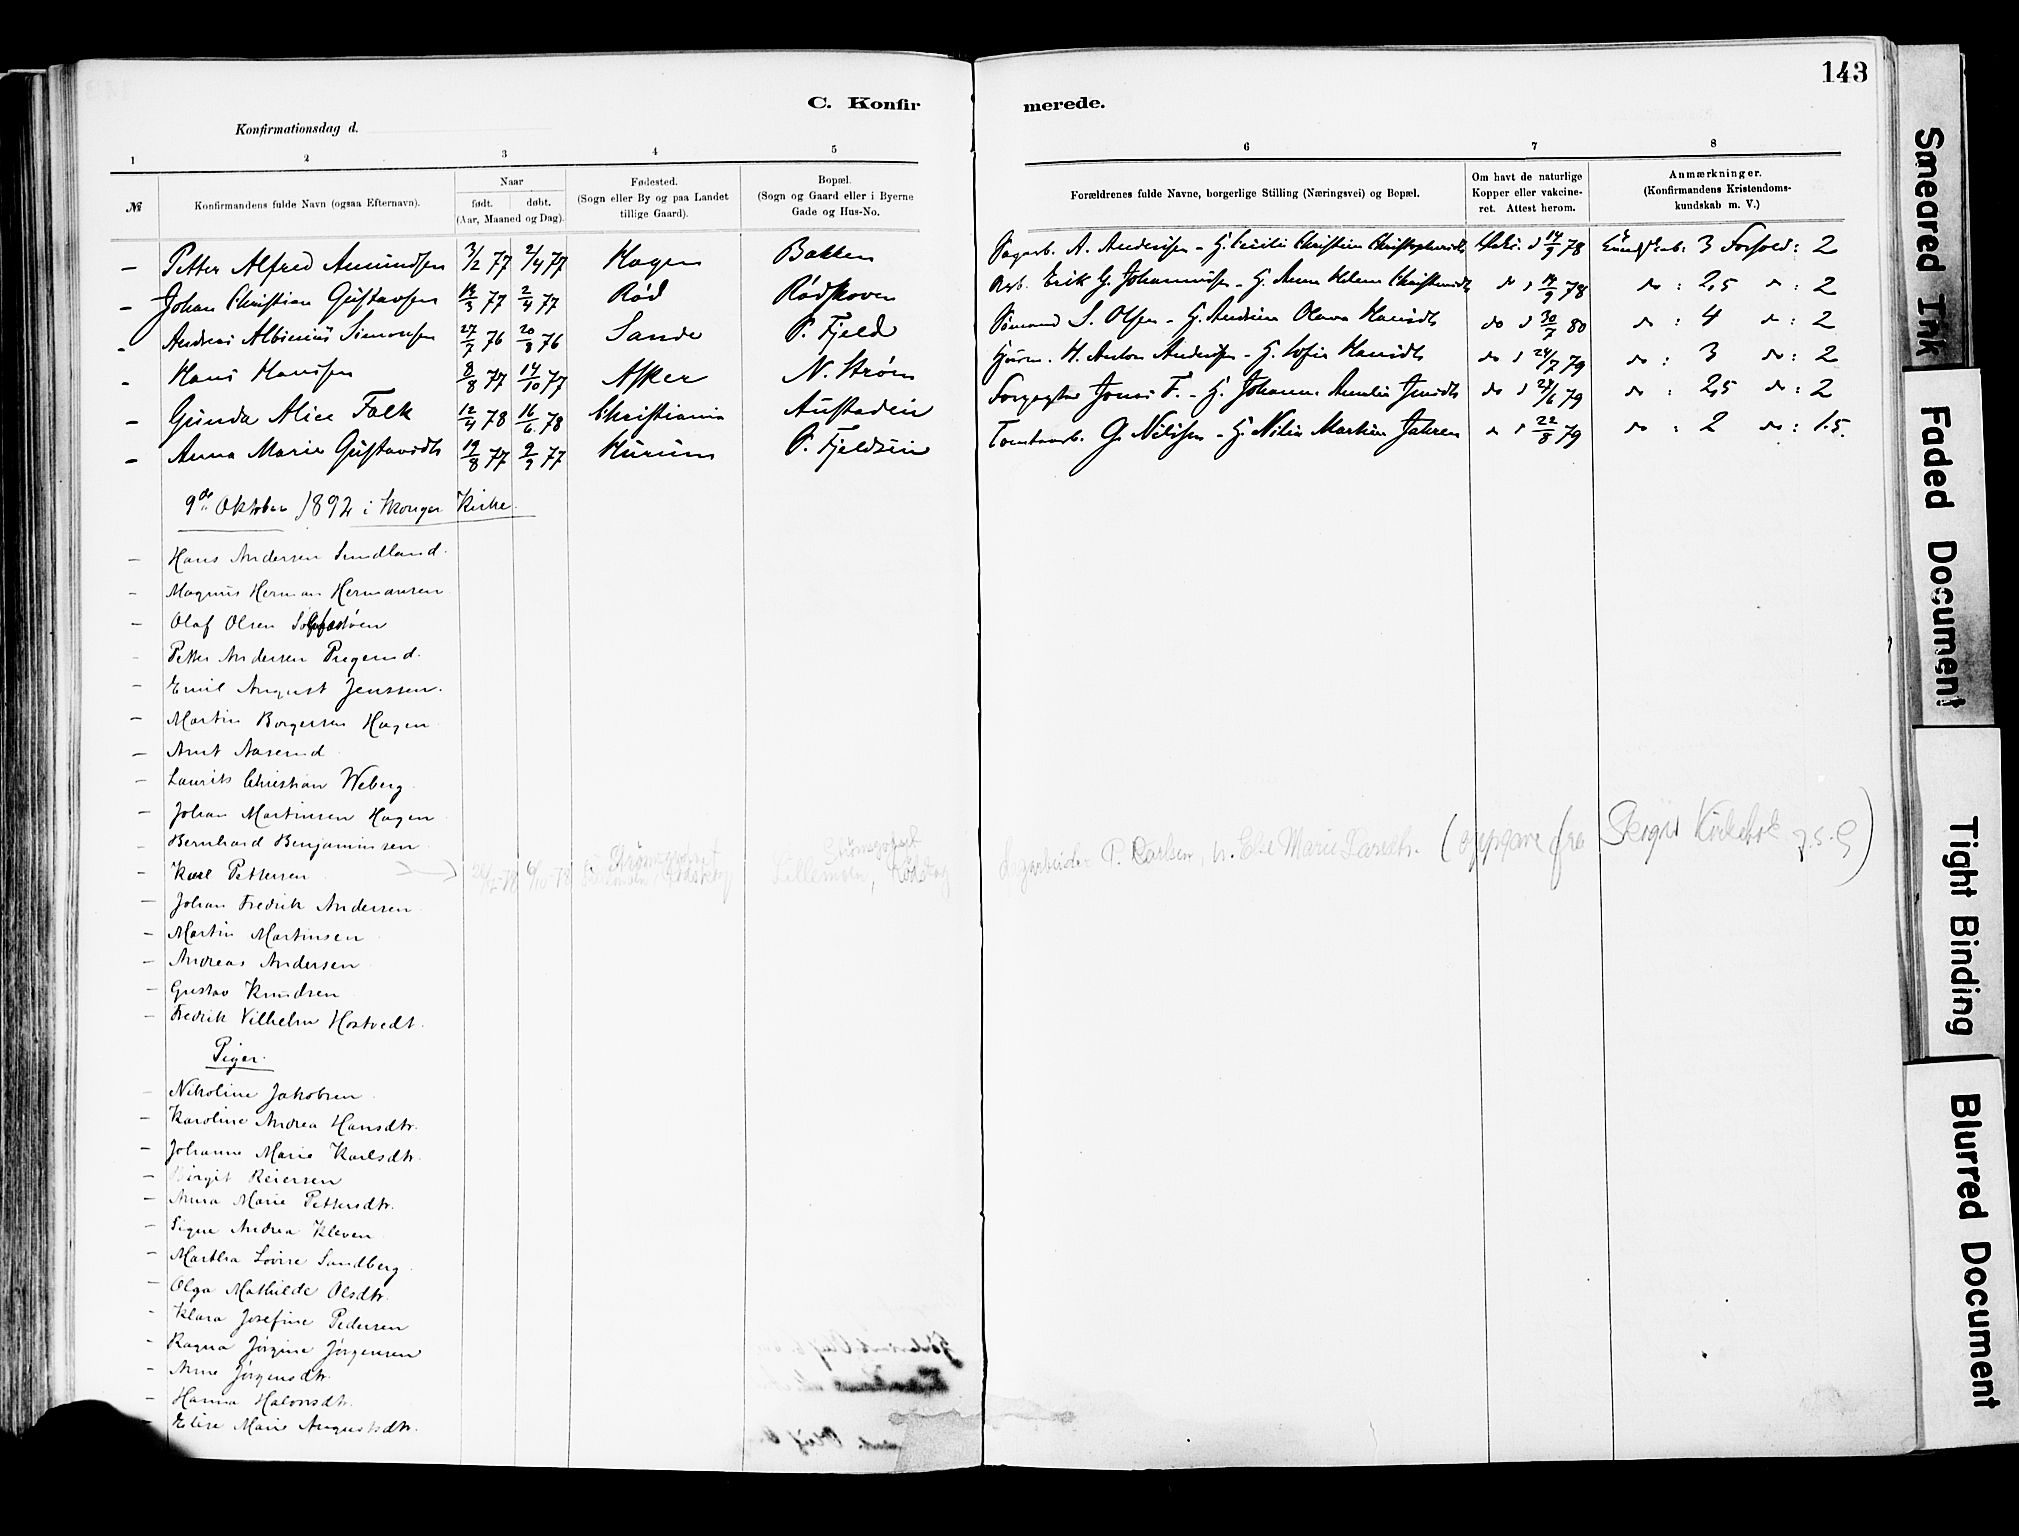 143
C. Konfir merede.
Konfirmationsdag d.
1 2 3 4 5 6 7 8
№ Konfirmandens fulde Navn (ogsaa Efternavn). Naar født. døbt. (Aar, Maaned og Dag). Fødested. (Sogn eller By og paa Landet tillige Gaard). Bopæl. (Sogn og Gaard eller i Byerne Gade og Hus-No. Forældrenes fulde Navne, borgerlige Stilling (Næringsvei) og Bopæl. Om havt de naturlige Kopper eller vakcineret. Attest herom. Anmærkninger. (Konfirmandens Kristendomskundskab m. V.)
– Petter Alfred Amundsen 3/2 77 2/4 77 Hagen Bakken A. Andersen - H. Christophersdt 14/9 78 Kundskab: 3 Forhold: 2
– Johan Christian Gustavsen 18/3 77 2/4 77 Rød Rødskoven Arb. Erik G. Johannessen - H. Anna Helene do 14/9 78 do : 2,5 do : 2
– Andreas Albinius Simonsen 27/7 76 20/8 76 Sande S. Fjeld Sømand S. Olsen - H. Andrine Olava Hansdt do 30/7 80 do : 4 do : 2
– Hans Hansen 8/8 77 14/10 77 Asker N. Strøm H. Anton Andersen - H. Sofie Hansdt do 24/7 79 do : 3 do : 2
– Gunda Alice Falk 12/4 78 16/6 78 Christiania Austadein Jonas F. - H. Johanne Amalie do 24/6 79 do : 2,5 do : 2
– Anna Marie Gustavsdt 19/8 77 9/9 77 Hurum S. Fjeldsein Tomtearb. G. Nilsen - H. Martine Jahren 22/8 79 do : 2 do : 1.5.
9de Oktober 1892 i Skouger Kirke.
– Hans Andersen Sundland.
– Magnus Herman Hermansen
– Olaf Olsen
– Petter Andersen
– Emil August Jenssen.
– Martin Borgersen Hagen
– Anut Aaserud
– Laurits Christian Weberg.
– Johan Martinsen Hagen
– Bernhard Benjaminsen
– Karl Pettersen Lillemoen, P. Karlsen, Else Marie Larsdtr. (opgave fra Skoger Kirkebok J.S.G)
– Johan Fredrik Andersen
– Martin Martinsen
– Andreas Andersen
– Gustav Knudsen
– Fredrik Vilhelm Hostvedt.
Piger.
– Nikoline Jakobsen
– Karoline Andrea Hansdtr.
– Johanne Marie Karlsdtr.
– Birgit Reiersen
– Anna Marie Pettersdtr.
– Signe Andrea Kleven
– Martha Lovise Sandberg
– Olga Mathilde Olsdtr.
– Klara Josefine Pedersen
– Ragna Jørgine Jørgensen
– Anne Jørgensdtr.
– Hanna Halvorsdtr.
– Elise Marie Augustsdtr.
Smeared Ink
Faded Document
Tight Binding
Blurred Document